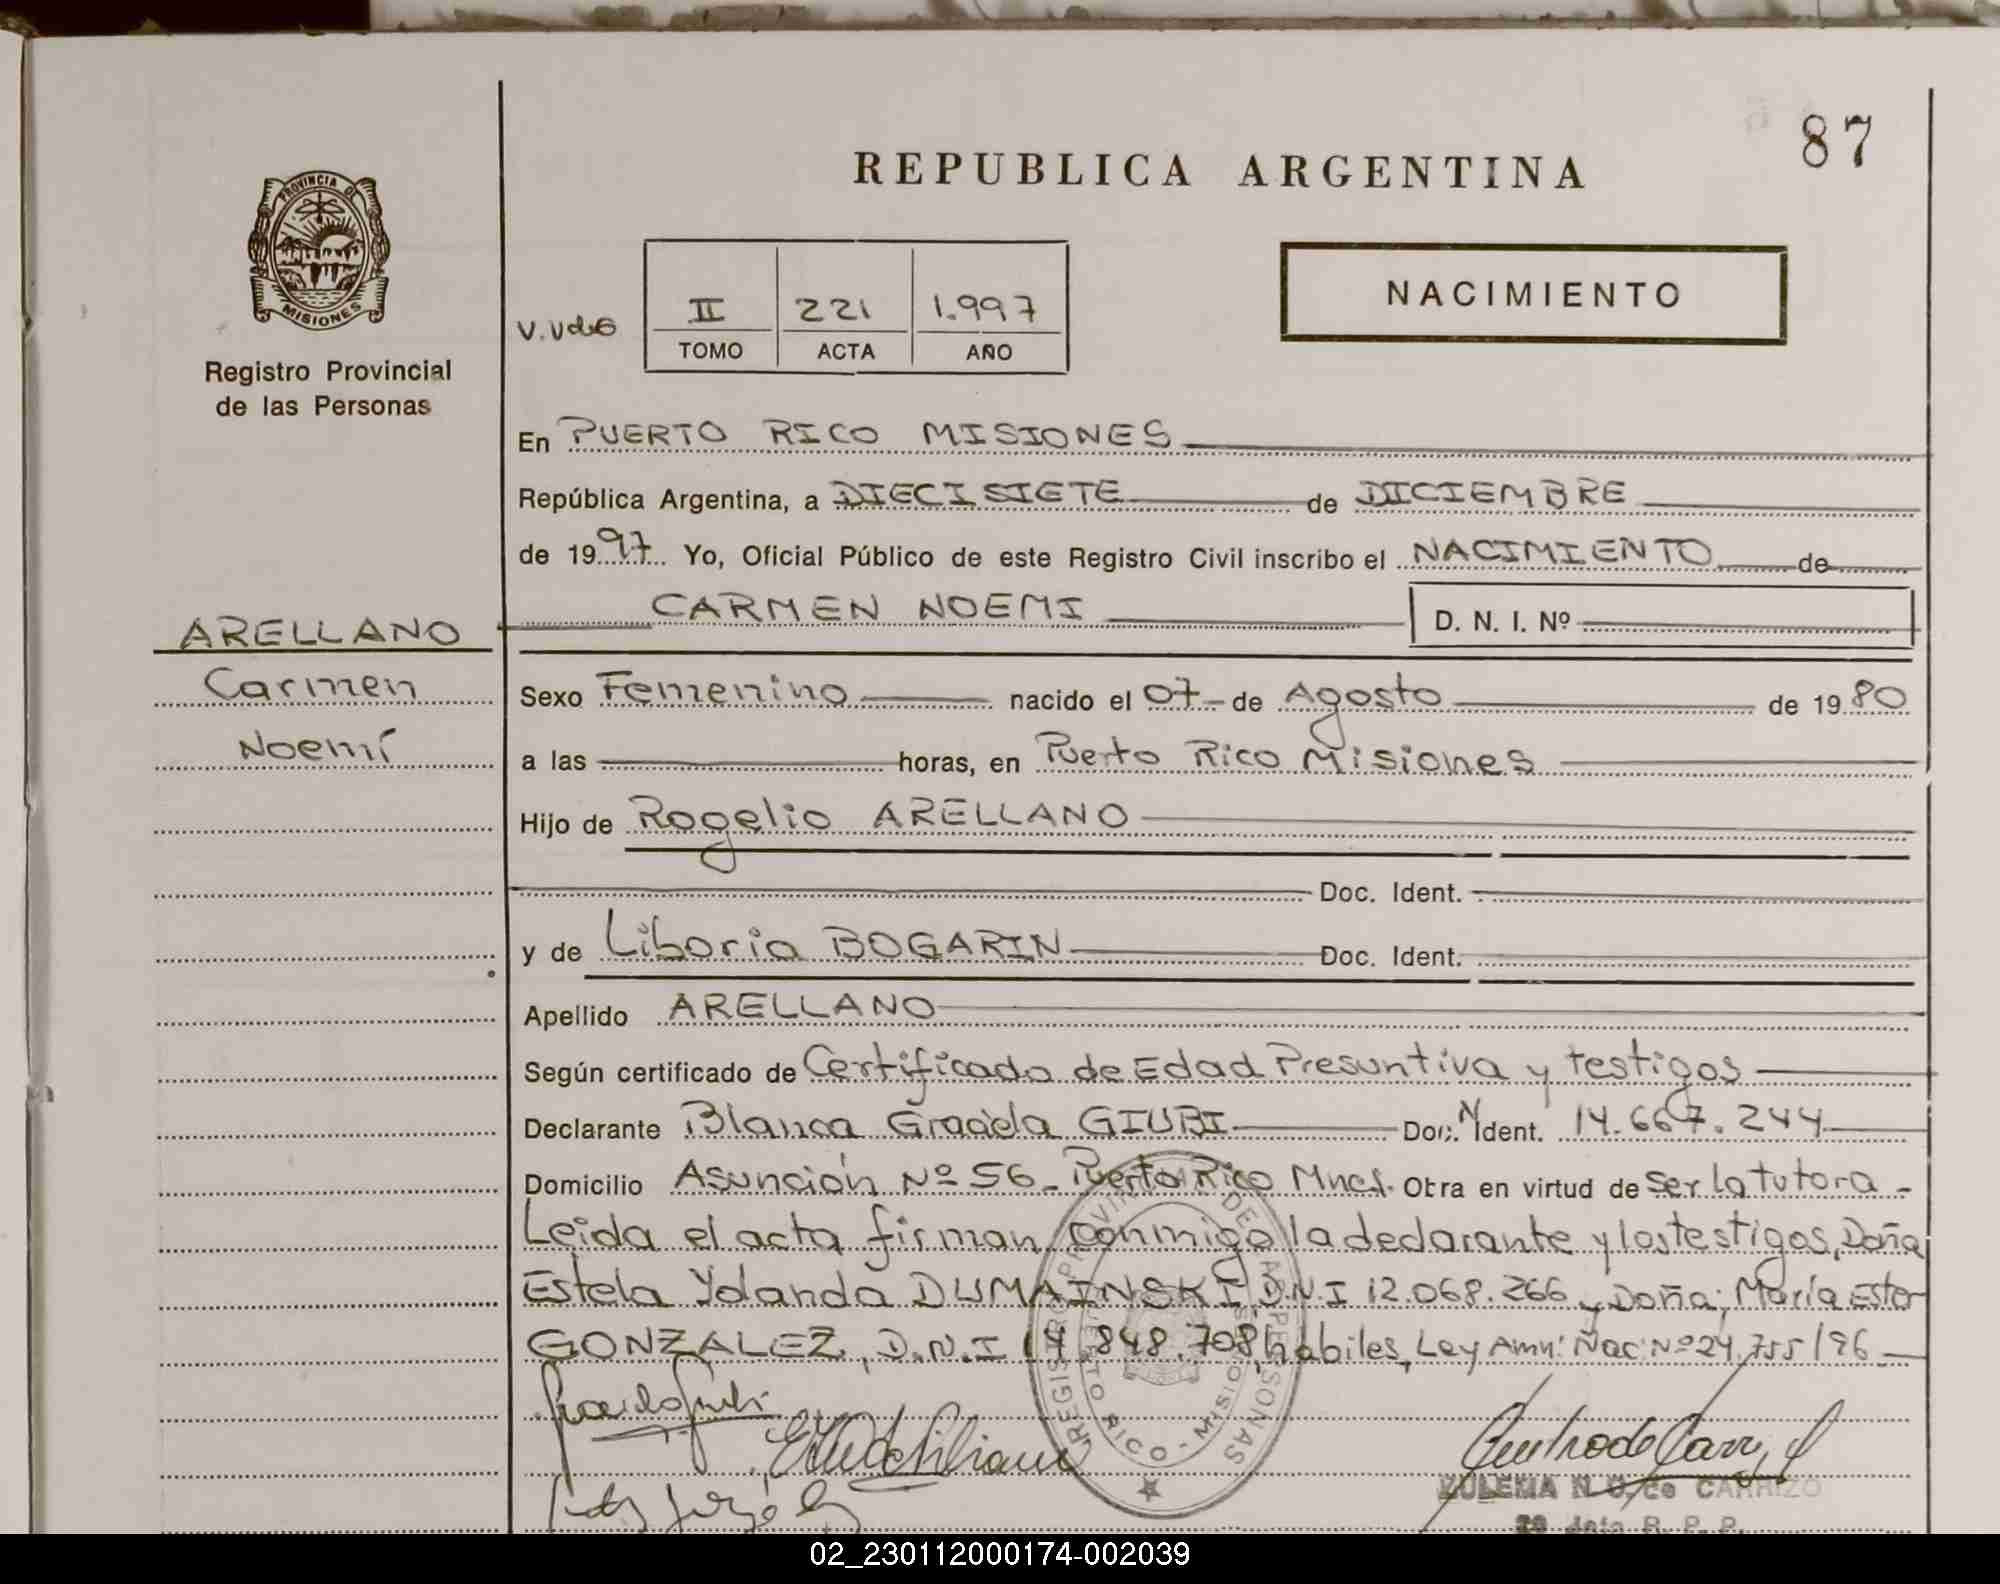 87
REPUBLICA ARGENTINA
PROVINCIA DE
MISIONES
Registro Provincial
de las Personas
II 221 1.997
TOMO ACTA AÑO
NACIMIENTO
En PUERTO RICO MISIONES
República Argentina, a DIECISIETE de DICIEMBRE
de 1997 Yo, Oficial Público de este Registro Civil inscribo el NACIMIENTO de
CARMEN NOEMI D. N. I. Nº
ARELLANO
Carmen
Noemí
Sexo Femenino nacido el 07 de Agosto de 1980
a las horas, en Puerto Rico Misiones
Hijo de Rogelio ARELLANO
Doc. Ident.
y de Liboria BOGARIN Doc. Ident.
Apellido ARELLANO
Según certificado de Certificado de Edad Presuntiva y testigos
Declarante Blanca Graciela GIUBI Doc. Ident. 14.667.244
Domicilio Asunción Nº 56 - Puerto Rico Mnes. Otra en virtud de ser la tutora -
Leida el acta firman conmigo la declarante y los testigos, Doña
Estela Yolanda DUMAINSKI, D.N.I 12.068.266 y Doña; María Ester
GONZALEZ, D.N.I 14.848.708, habiles, Ley Amn: Nac: Nº 24.755/96
REGISTRO PROVINCIAL DE LAS PERSONAS
PUERTO RICO - MISIONES
ZULEMA N. G. de CARRIZO
02_230112000174-002039